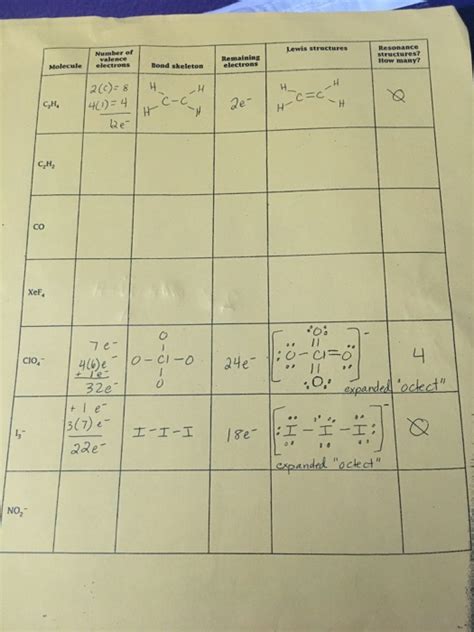 Molecule
Number of valence electrons
Bond skeleton
Remaining electrons
Lewis structures
Resonance structures? How many?
C₂H₄
2(C)= 8
4(1)= 4
12e⁻
H H
C-C
H H
2e⁻
H H
C=C
H H
Ø
C₂H₂
CO
XeF₄
ClO₄⁻
7 e⁻
4(6)e⁻
+ 1e⁻
32e⁻
O
O-Cl-O
O
24e⁻
O
O-Cl=O
O
-
expanded "octect"
4
I₃⁻
+ 1 e⁻
3(7)e⁻
22e⁻
I-I-I
18e⁻
I-I-I
-
expanded "octect"
Ø
NO₂⁻